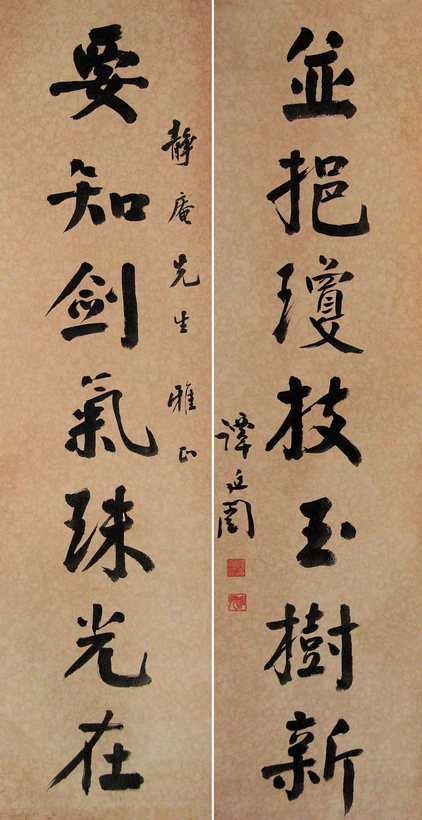 要知劍氣珠光在
靜庵先生 雅正
並挹瓊枝玉樹新
譚延闓